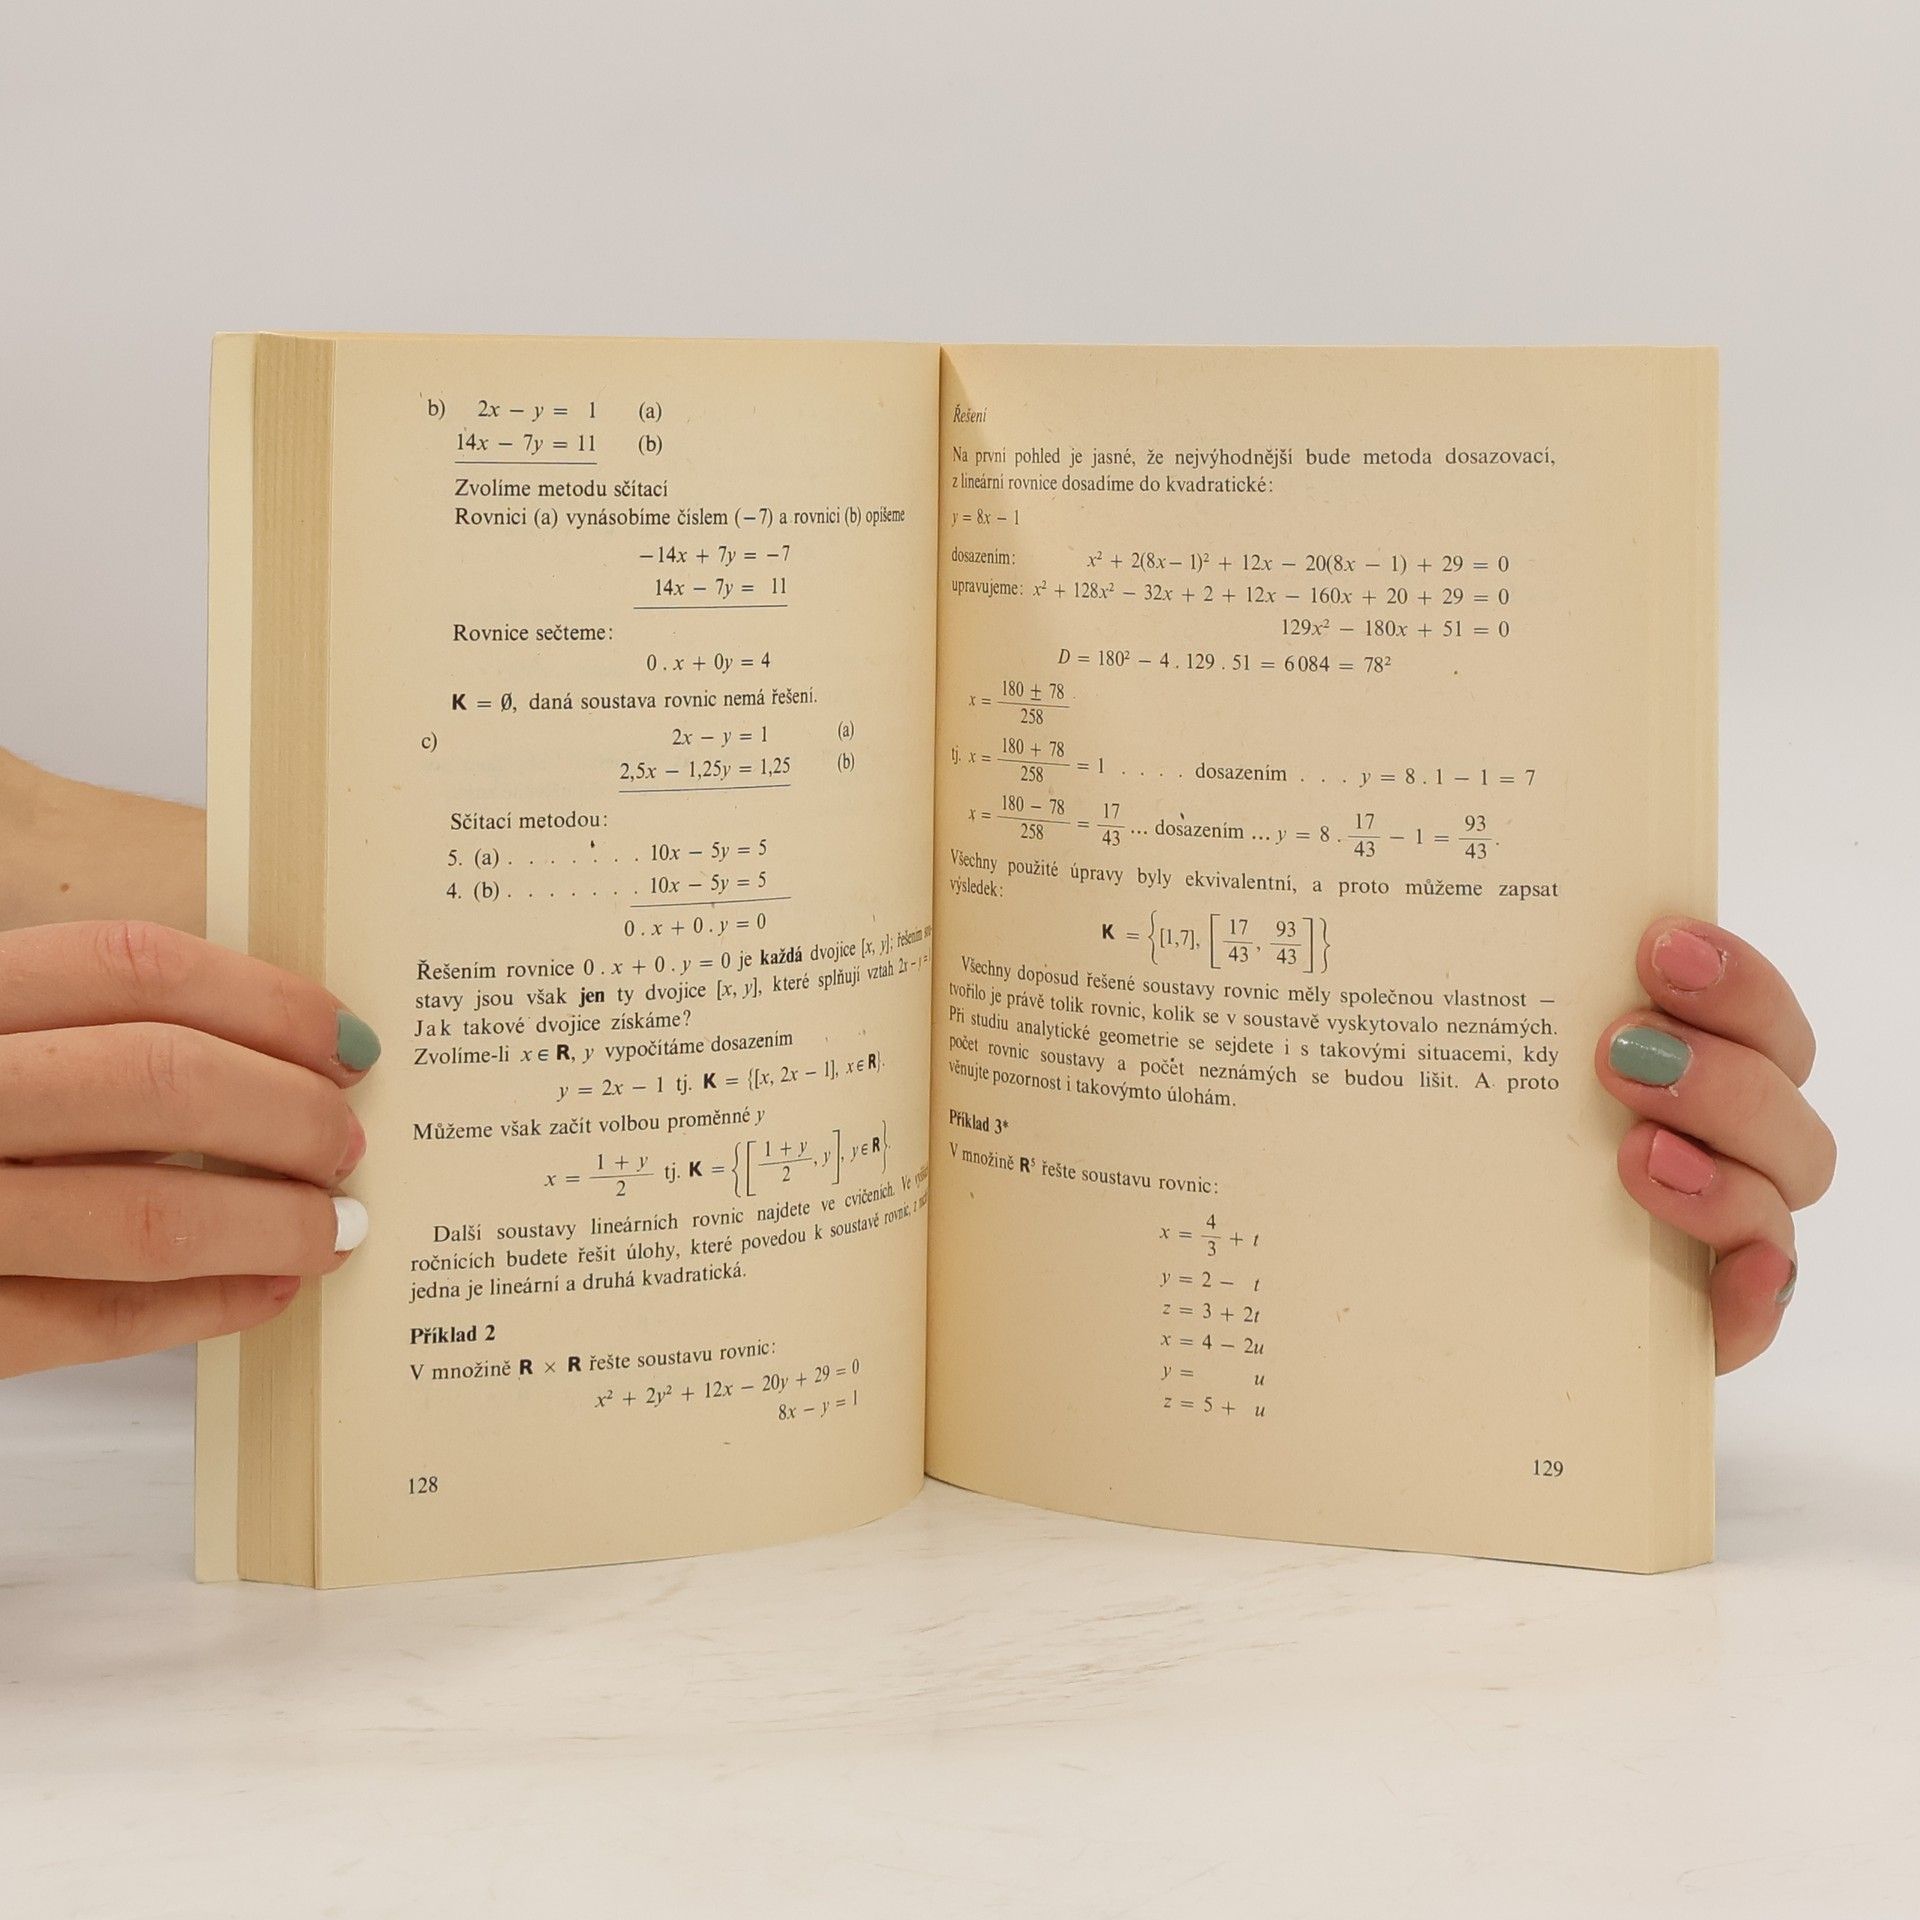 b) 2x − y = 1 (a)
14x − 7y = 11 (b)
Zvolíme metodu sčítací
Rovnici (a) vynásobíme číslem (−7) a rovnici (b) opíšeme
−14x + 7y = −7
14x − 7y = 11
Rovnice sečteme:
0 . x + 0y = 4
K = Ø, daná soustava rovnic nemá řešení.
c) 2x − y = 1 (a)
2,5x − 1,25y = 1,25 (b)
Sčítací metodou:
5. (a) . . . . . . . 10x − 5y = 5
4. (b) . . . . . . . 10x − 5y = 5
0 . x + 0 . y = 0
Řešením rovnice 0 . x + 0 . y = 0 je každá dvojice [x, y]; řešením
stavy jsou však jen ty dvojice [x, y], které splňují vztah 2x − y =
Jak takové dvojice získáme?
Zvolíme-li x ∈ R, y vypočítáme dosazením
y = 2x − 1 tj. K = {[x, 2x − 1], x ∈ R}.
Můžeme však začít volbou proměnné y
x = (1 + y)/2 tj. K = {[(1 + y)/2, y], y ∈ R}.
Další soustavy lineárních rovnic najdete ve cvičeních. Ve
ročnících budete řešit úlohy, které povedou k soustavě rovnic, z
jedna je lineární a druhá kvadratická.
Příklad 2
V množině R × R řešte soustavu rovnic:
x² + 2y² + 12x − 20y + 29 = 0
8x − y = 1
128
Řešení
Na první pohled je jasné, že nejvýhodnější bude metoda dosazovací,
z lineární rovnice dosadíme do kvadratické:
y = 8x − 1
dosazením: x² + 2(8x − 1)² + 12x − 20(8x − 1) + 29 = 0
upravujeme: x² + 128x² − 32x + 2 + 12x − 160x + 20 + 29 = 0
129x² − 180x + 51 = 0
D = 180² − 4 . 129 . 51 = 6084 = 78²
x = (180 ± 78)/258
tj. x = (180 + 78)/258 = 1 . . . . dosazením . . . y = 8 . 1 − 1 = 7
x = (180 − 78)/258 = 17/43 ... dosazením ... y = 8 . 17/43 − 1 = 93/43.
Všechny použité úpravy byly ekvivalentní, a proto můžeme zapsat
výsledek:
K = {[1,7], [17/43, 93/43]}
Všechny doposud řešené soustavy rovnic měly společnou vlastnost —
tvořilo je právě tolik rovnic, kolik se v soustavě vyskytovalo neznámých.
Při studiu analytické geometrie se sejdete i s takovými situacemi, kdy
počet rovnic soustavy a počet neznámých se budou lišit. A proto
věnujte pozornost i takovýmto úlohám.
Příklad 3*
V množině R⁵ řešte soustavu rovnic:
x = 4/3 + t
y = 2 − t
z = 3 + 2t
x = 4 − 2u
y = u
z = 5 + u
129